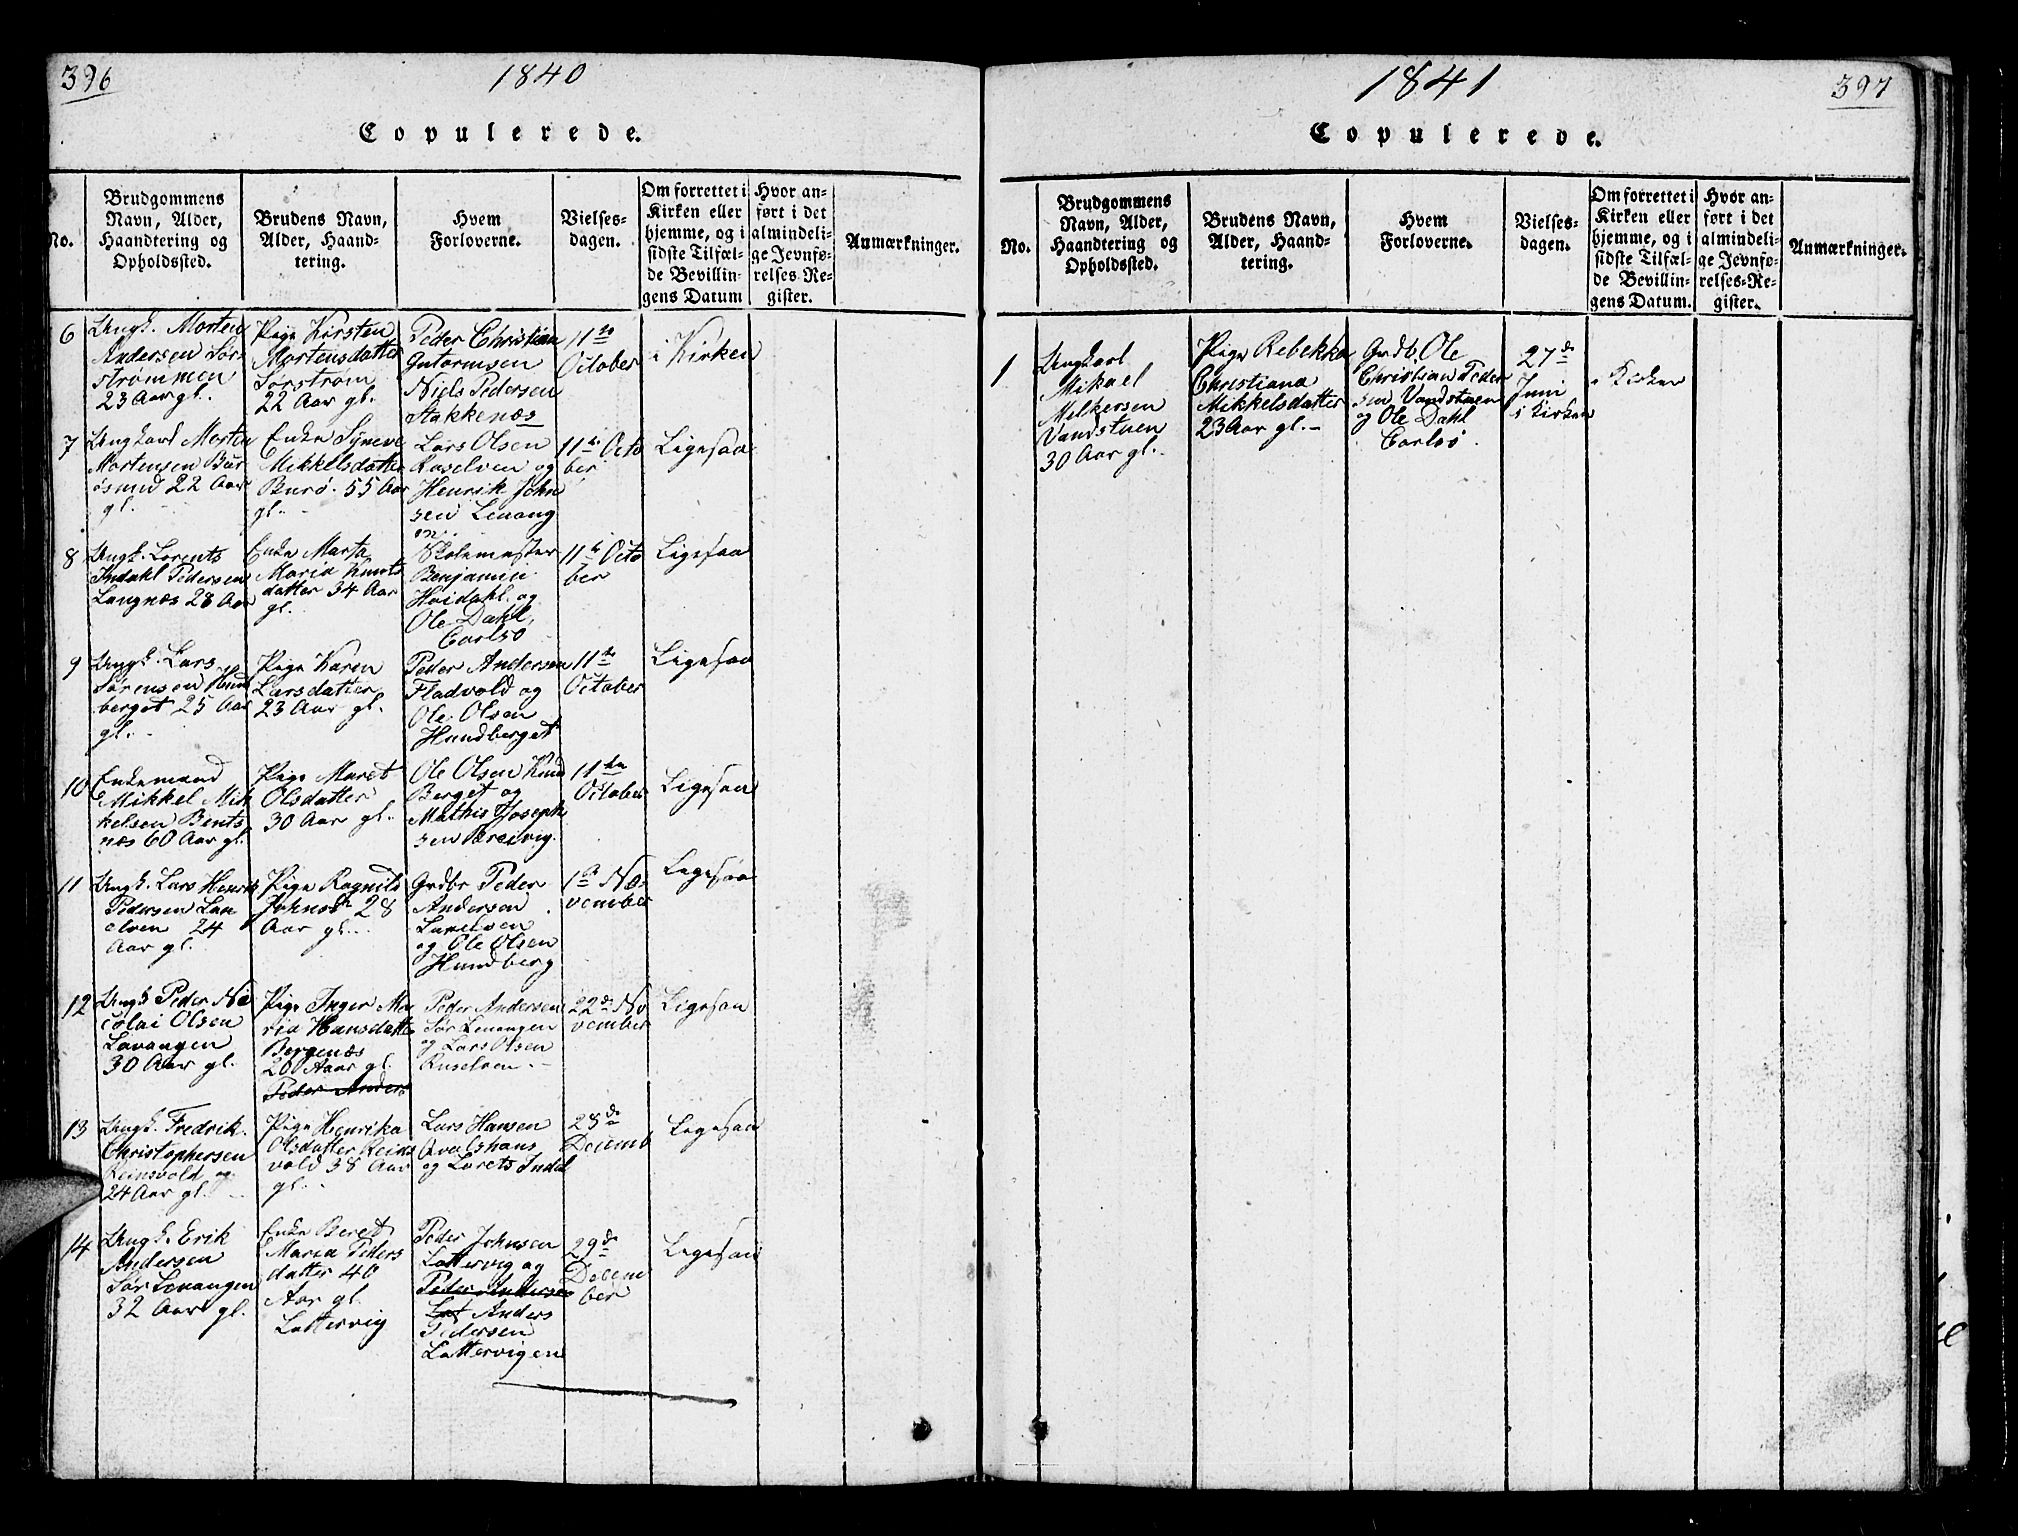 396
1840
Copulerede.
No.
Brudgommens
Navn, Alder,
Haandtering og
Opholdssted.
Brudens Navn,
Alder, Haand-
tering.
Hvem
Forloverne.
Vielses-
dagen.
Om forrettet i
Kirken eller
hjemme, og i
sidste Tilfæl-
de Bevillin-
gens Datum
Hvor an-
ført i det
almindeli-
ge Jevnfø-
relses-Re-
gister.
Anmærkninger.
6
Ungk. Morten
Andersen Sør
strømmen
23 Aar gl.
Pige Kirsten
Mortensdatter
Sørstrøm
22 Aar gl.
Peder Christian
Gutormsen
Niels Pedersen
Stakkenæs
11te
October
i Kirken
7
Ungkarl Morten
Mortensen Bur
øsund 22 Aar
gl.
Enke Syneve
Mikkelsdatter
Burø 55 Aar
gl.
Lars Olsen
Ruselven og
Henrik John
sen Levang
en
11te Octo
ber
Ligesaa
8
Ungk. Lorents
Indahl Pedersen
Langnæs 28 Aar
Enke Marta
Maria Knuts
datter 34 Aar
gl.
Skolemester
Benjamin
Hvidahl og
Ole Dahl,
Carlsø
11te Octo
ber
Ligesaa
9
Ungk. Lars
Sørensen Hun
berget 25 Aar
gl.
Pige Karen
Larsdatter
23 Aar gl.
Peder Andersen
Fladvold og
Ole Olsen
Hundberget
11te
October
Ligesaa
10
Enkemand
Mikkel Mik
kelsen Bents
næs 60 Aar gl.
Pige Maret
Olsdatter
30 Aar gl.
Ole Olsen Hund
Berget og
Mathis Joseph
sen Breivig.
11te
October
Ligesaa
11
Ungk. Lars Henrik
Pedersen Lan
elven 24
Aar gl.
Pige Ragnild
Johnsd. 28
Aar gl.
Grdbr Peder
Andersen
og Ole Olsen
Hundberg
1ste No
vember
Ligesaa
12
Ungk Peder Ni
colai Olsen
Lavangen
30 Aar gl.
Pige Inger Ma
ria Hansdatter
Bergenæs
20 Aar gl.
Peder Anders
Peder Andersen
Sør Levangen
og Lars Olsen
Ruselven.
22de No
vember
Ligesaa
13
Ungk. Fredrik
Christophersen
Reinsvold og
24 Aar gl.
Pige Henrika
Olsdatter Reins
vold 38 Aar
gl.
Lars Hansen
Qvalshaus
og Lorets Indal
28de
Decemb
Ligesaa
14
Ungk. Erik
Andersen
Sør Levangen
32 Aar gl.
Enke Beret
Maria Peders
datter 40
Aar gl.
Lattervig
Peder Johnsen
Lattervig og
Peder Andersen
Lat Anders
Pedersen
Lattervigen
29de
Decem
ber
Ligesaa
1841
397
Copulerede.
No.
Brudgommens
Navn, Alder,
Haandtering og
Opholdssted.
Brudens Navn,
Alder, Haand-
tering.
Hvem
Forloverne.
Vielses-
dagen.
Om forrettet i
Kirken eller
hjemme, og i
sidste Tilfæl-
de Bevillin-
gens Datum.
Hvor an-
ført i det
almindeli-
ge Jevnfø-
relses-Re-
gister.
Anmærkninger.
1
Ungkarl
Mikael
Milkersen
Vandstuen
30 Aar gl.
Pige Rebekka
Christiana
Mikkelsdatter
23 Aar gl.
Grdb. Ole
Christian Peder
sen Vandstuen
og Ole Dahl
Carlsø
27de
Juni
i Kirken
i Kirken